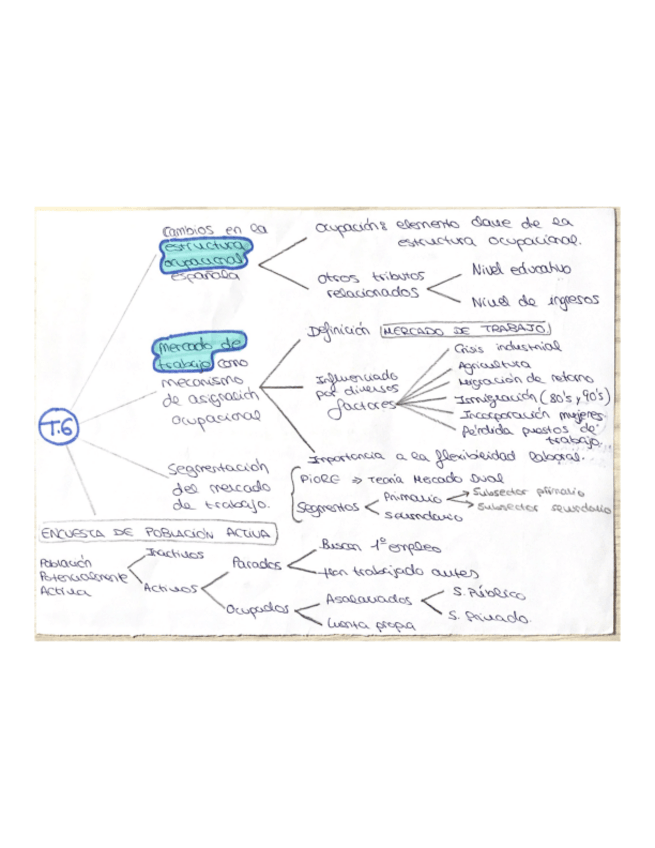 Cambios en la
estructura
ocupacional
española
Ocupación: elemento clave de la
estructura ocupacional.
Otros tributos
relacionados
Nivel educativo
Nivel de ingresos
Mercado de
trabajo como
mecanismo
de asignación
ocupacional
Definición MERCADO DE TRABAJO
Influenciado
por diversos
factores
Crisis industrial
Agricultura
Migración de retorno
Inmigración (80's y 90's)
Incorporación mujeres
Pérdida puestos de
trabajo.
Importancia a la flexibilidad laboral.
T.6
Segmentación
del mercado
de trabajo.
PIORE => Teoría Mercado Dual
Segmentos
Primario
Subsector primario
Subsector secundario
Secundario
ENCUESTA DE POBLACIÓN ACTIVA
Población
Potencialmente
Activa
Inactivos
Activos
Parados
Buscan 1º empleo
Han trabajado antes
Ocupados
Asalariados
S. Público
S. Privado.
Cuenta propia